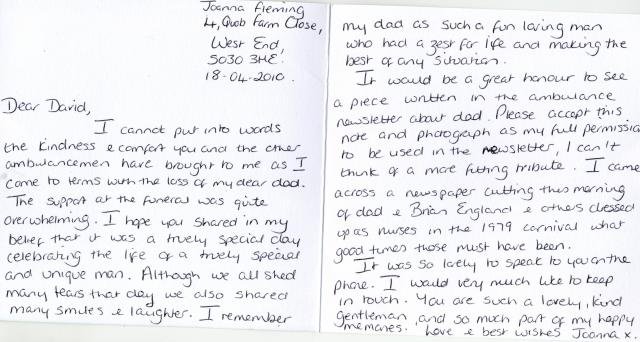 Joanna Fleming
4, Quob Farm Close,
West End,
SO30 3HE.
18-04-2010.
Dear David,
I cannot put into words
the kindness & comfort you and the other
ambulancemen have brought to me as I
come to terms with the loss of my dear dad.
The support at the funeral was quite
overwhelming. I hope you shared in my
belief that it was a truely special day
celebrating the life of a truely special
and unique man. Although we all shed
many tears that day we also shared
many smiles & laughter. I remember
my dad as such a fun loving man
who had a zest for life and making the
best of any situation.
It would be a great honour to see
a piece written in the ambulance
newsletter about dad. Please accept this
note and photograph as my full permissio
to be used in the newsletter, I can't
think of a more fitting tribute. I came
across a newspaper cutting this morning
of dad & Brian England & others dressed
up as nurses in the 1979 carnival what
good times those must have been.
It was so lovely to speak to you on the
phone. I would very much like to keep
in touch. You are such a lovely, kind
gentleman, and so much part of my happy
memories. Love & best wishes Joanna x.